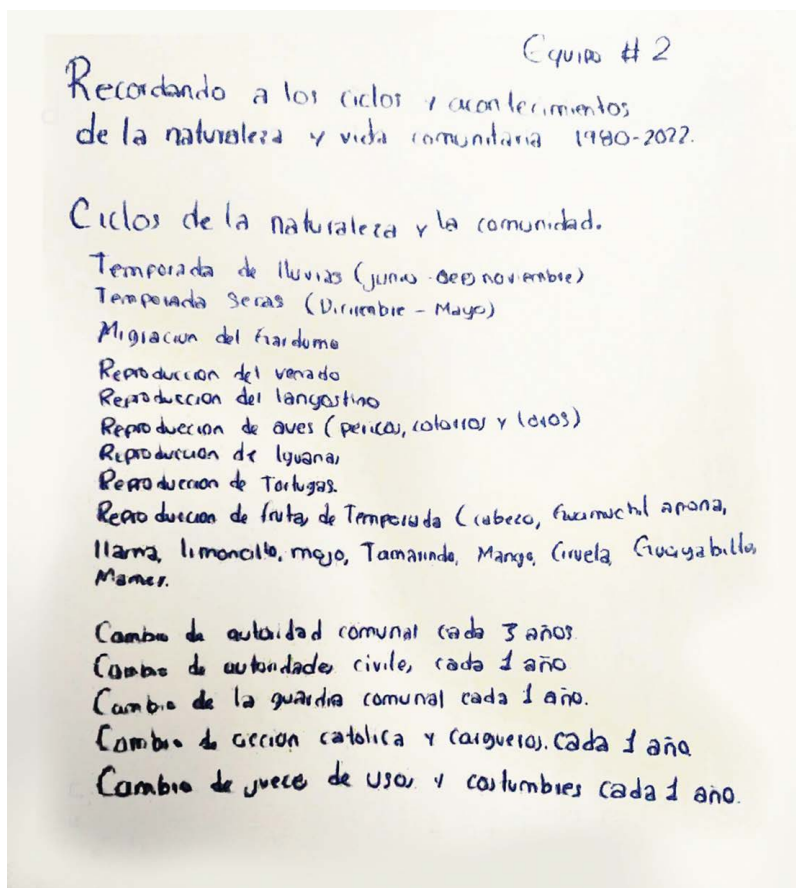 Equipo # 2
Recordando a los ciclos y acontecimientos
de la naturaleza y vida comunitaria 1980-2022.
Ciclos de la naturaleza y la comunidad.
Temporada de lluvias (junio noviembre)
Temporada secas (Diciembre - Mayo)
Migracion del
Reproduccion del venado
Reproduccion del langostino
Reproduccion de aves (pericos, cotorros y loros)
Reproduccion de Iguanas
Reproduccion de Tortugas.
Reproduccion de frutas de Temporada (cabezo, Guamuchil anona,
llama, limoncillo, mojo, Tamarindo, Mango, Ciruela, Guayabillo,
Mamey.
Cambio de autoridad comunal cada 3 años
Cambio de autoridades civiles, cada 1 año
Cambio de la guardia comunal cada 1 año.
Cambio de accion catolica y cargueros. Cada 1 año
Cambio de jueces de usos y costumbres cada 1 año.